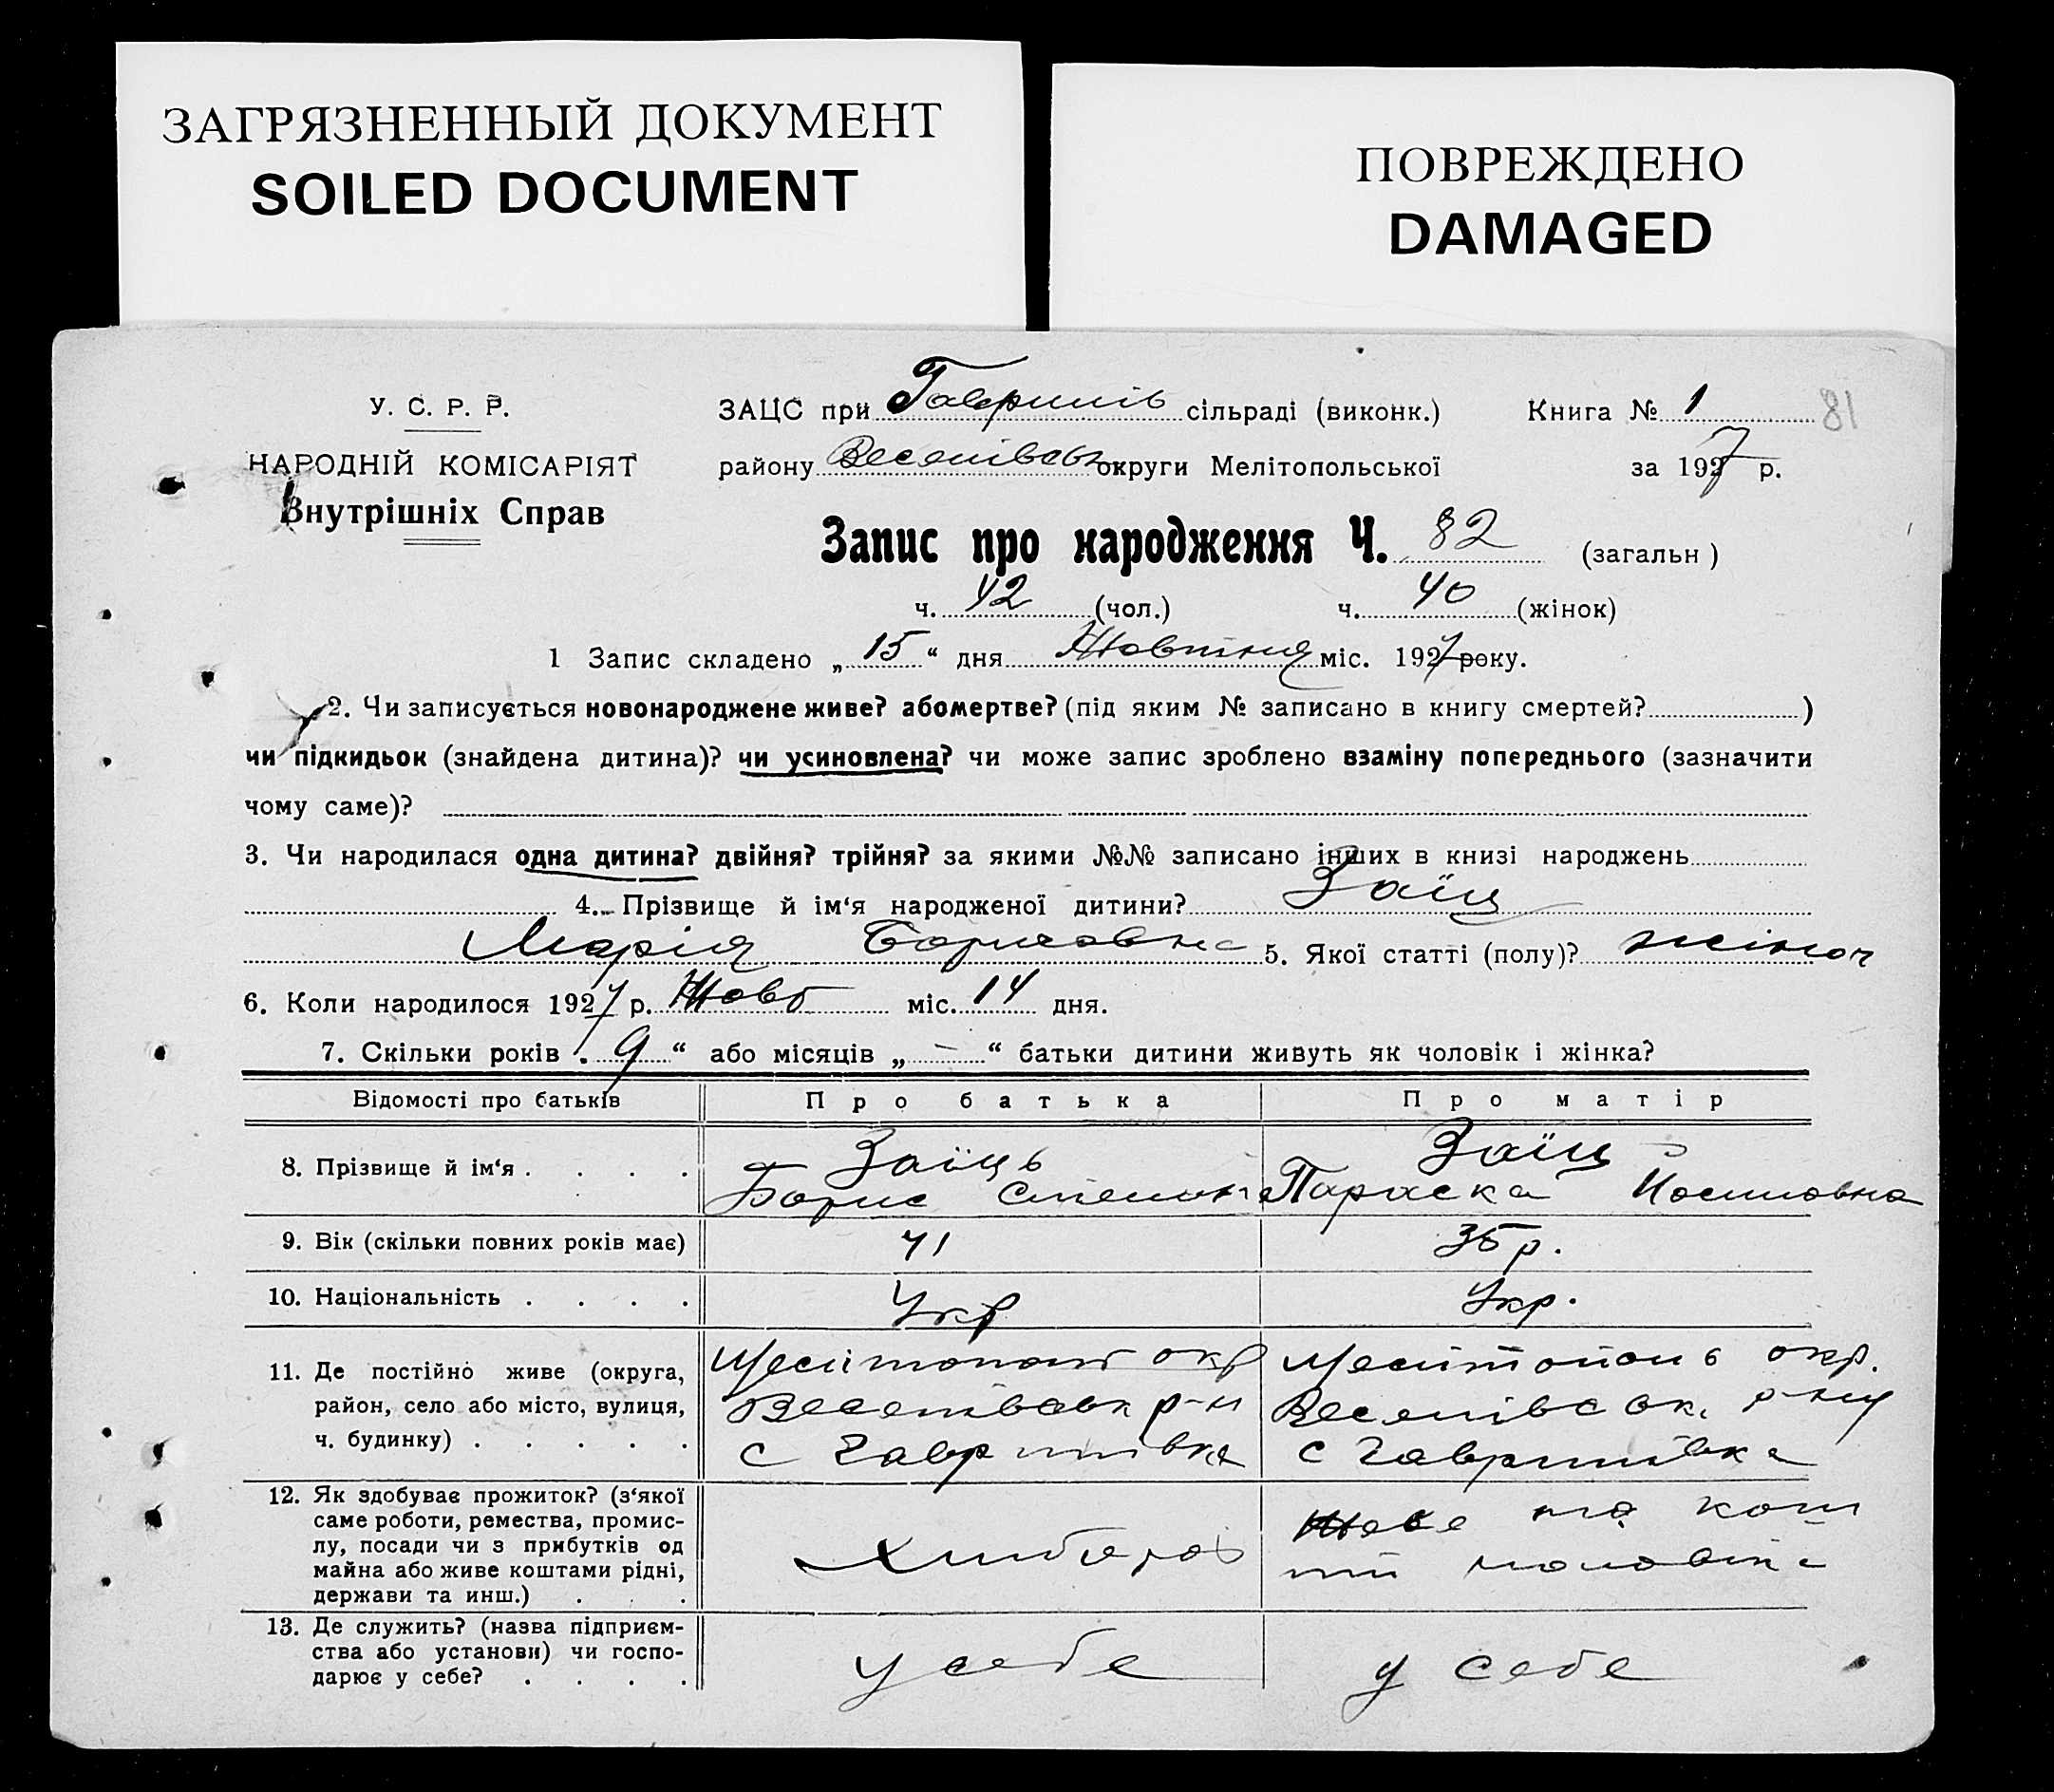 ЗАГРЯЗНЕННЫЙ ДОКУМЕНТ
SOILED DOCUMENT
ПОВРЕЖДЕНО
DAMAGED
У. С. Р. Р.
НАРОДНІЙ КОМІСАРІЯТ
Внутрішніх Справ
ЗАЦС при Гаврилів сільраді (виконк.) Книга № 1 81
району Веселівськ округи Мелітопольської за 1927 р.
Запис про народження Ч. 82 (загальн )
ч. 42 (чол.) ч. 40 (жінок)
1 Запис складено „ 15 “ дня Жовтня міс. 1927 року.
2. Чи записується новонароджене живе? або мертве? (під яким № записано в книгу смертей? )
чи підкидьок (знайдена дитина)? чи усиновлена? чи може запис зроблено взаміну попереднього (зазначити
чому саме)?
3. Чи народилася одна дитина? двійня? трійня? за якими №№ записано інших в книзі народжень
4. Прізвище й ім‘я народженої дитини? Заїц
Марія Борисовна 5. Якої статті (полу)? жіноч
6. Коли народилося 1927 р. Жовт міс. 14 дня.
7. Скільки років „ 9 “ або місяців „ - “ батьки дитини живуть як чоловік і жінка?
Відомості про батьків Про батька Про матір
8. Прізвище й ім‘я . . . . Заїць Заїц
Борис Параска
9. Вік (скільки повних років має) 41 35 р.
10. Національність . . . . Укр Укр.
11. Де постійно живе (округа, Мелітополь окр Мелітополь окр.
район, село або місто, вулиця, Веселівськ р-н Веселівськ. р-ну
ч. будинку) . . . . . с Гаврилівка с Гаврилівка
12. Як здобуває прожиток? (з‘якої
саме роботи, ремества, промис-
лу, посади чи з прибутків од
майна або живе коштами рідні,
держави та инш.) . . .
Хлібороб
Живе на кош
ти чоловіка
13. Де служить? (назва підприєм-
ства або установи) чи госпо-
дарює у себе? . . . .
у себе у себе